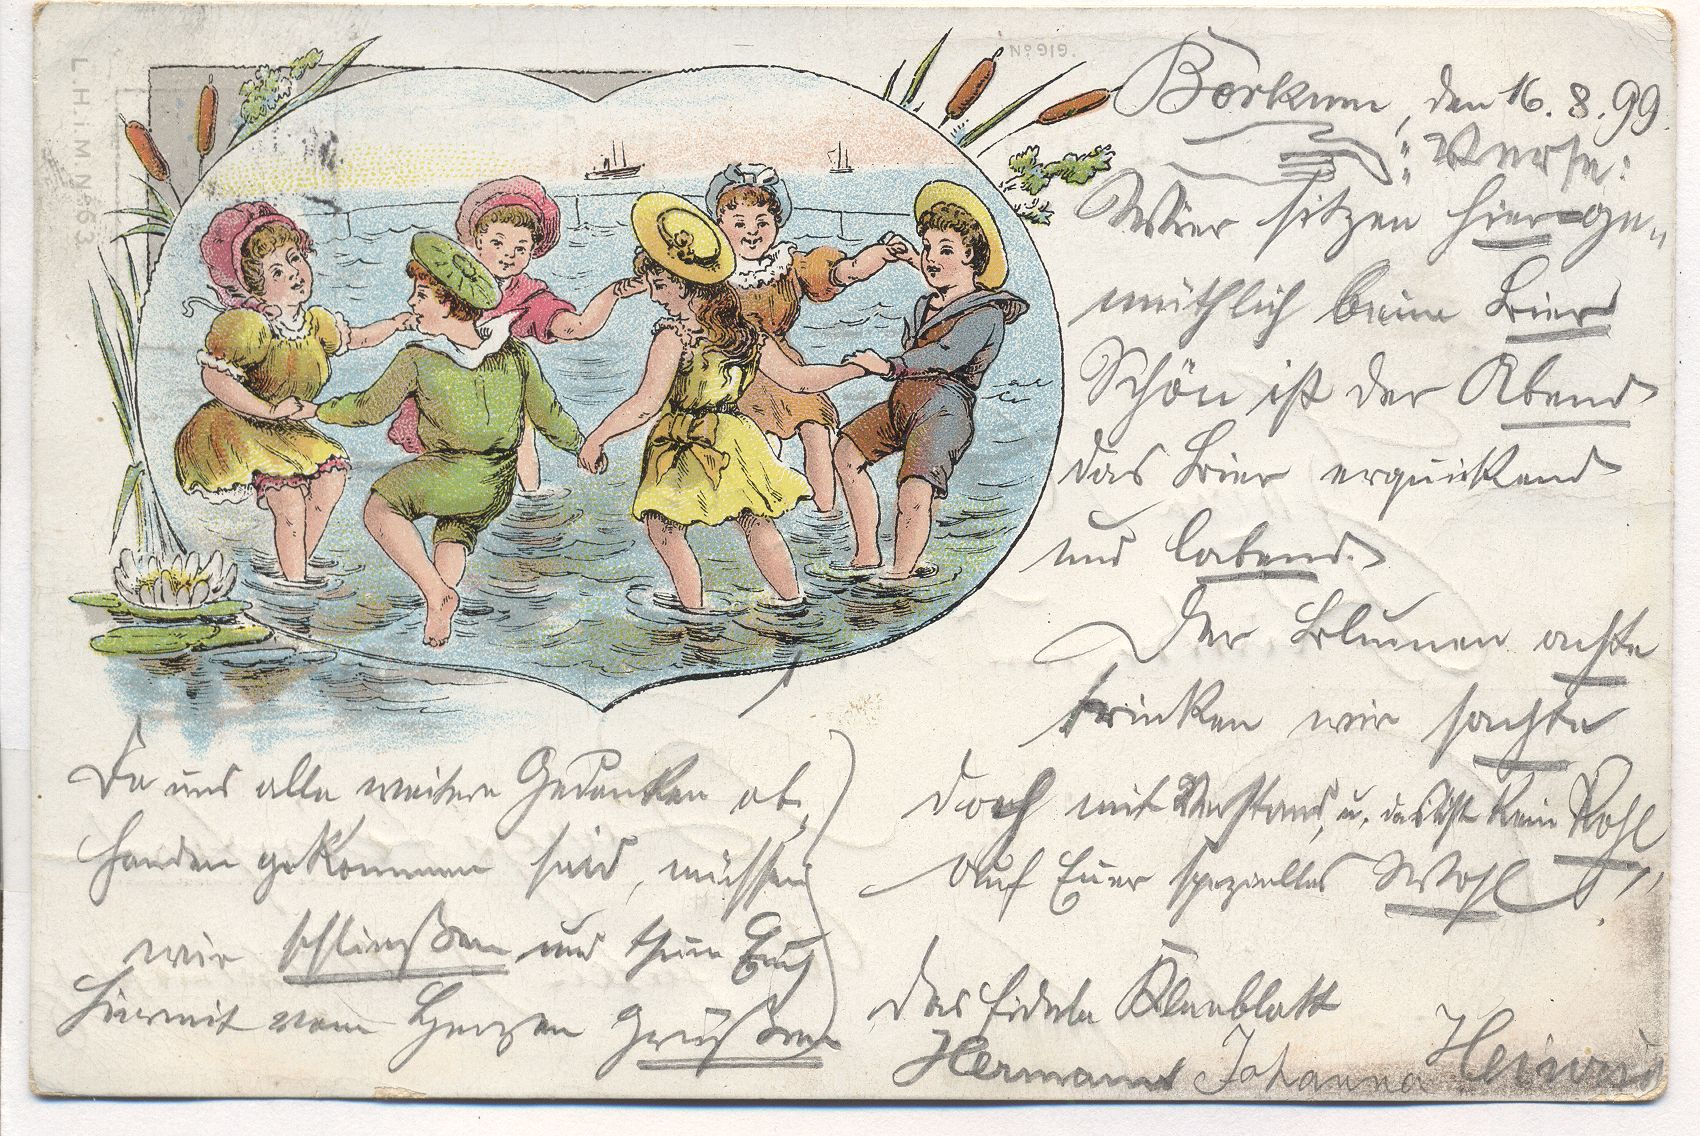 No 919.
L.H.i.M. No 63
Borkum, den 16. 8. 99.
Verse:
Wier sitzen hier ge„
müthlich beim Bier
Schön ist der Abend
das Bier erquickend
und labend.
Der Blumen achte
trinken wir sachte
doch mit Verstand, u. das ist kein Kohl
auf Euer spezielles Wohl!
Da uns alle weitere Gedanken ab„
handen gekommen sind, müssen
wir schließen und thun Euch
hiermit vom Herzen grüßen
Das fidele Kleeblatt
Hermann Johanna